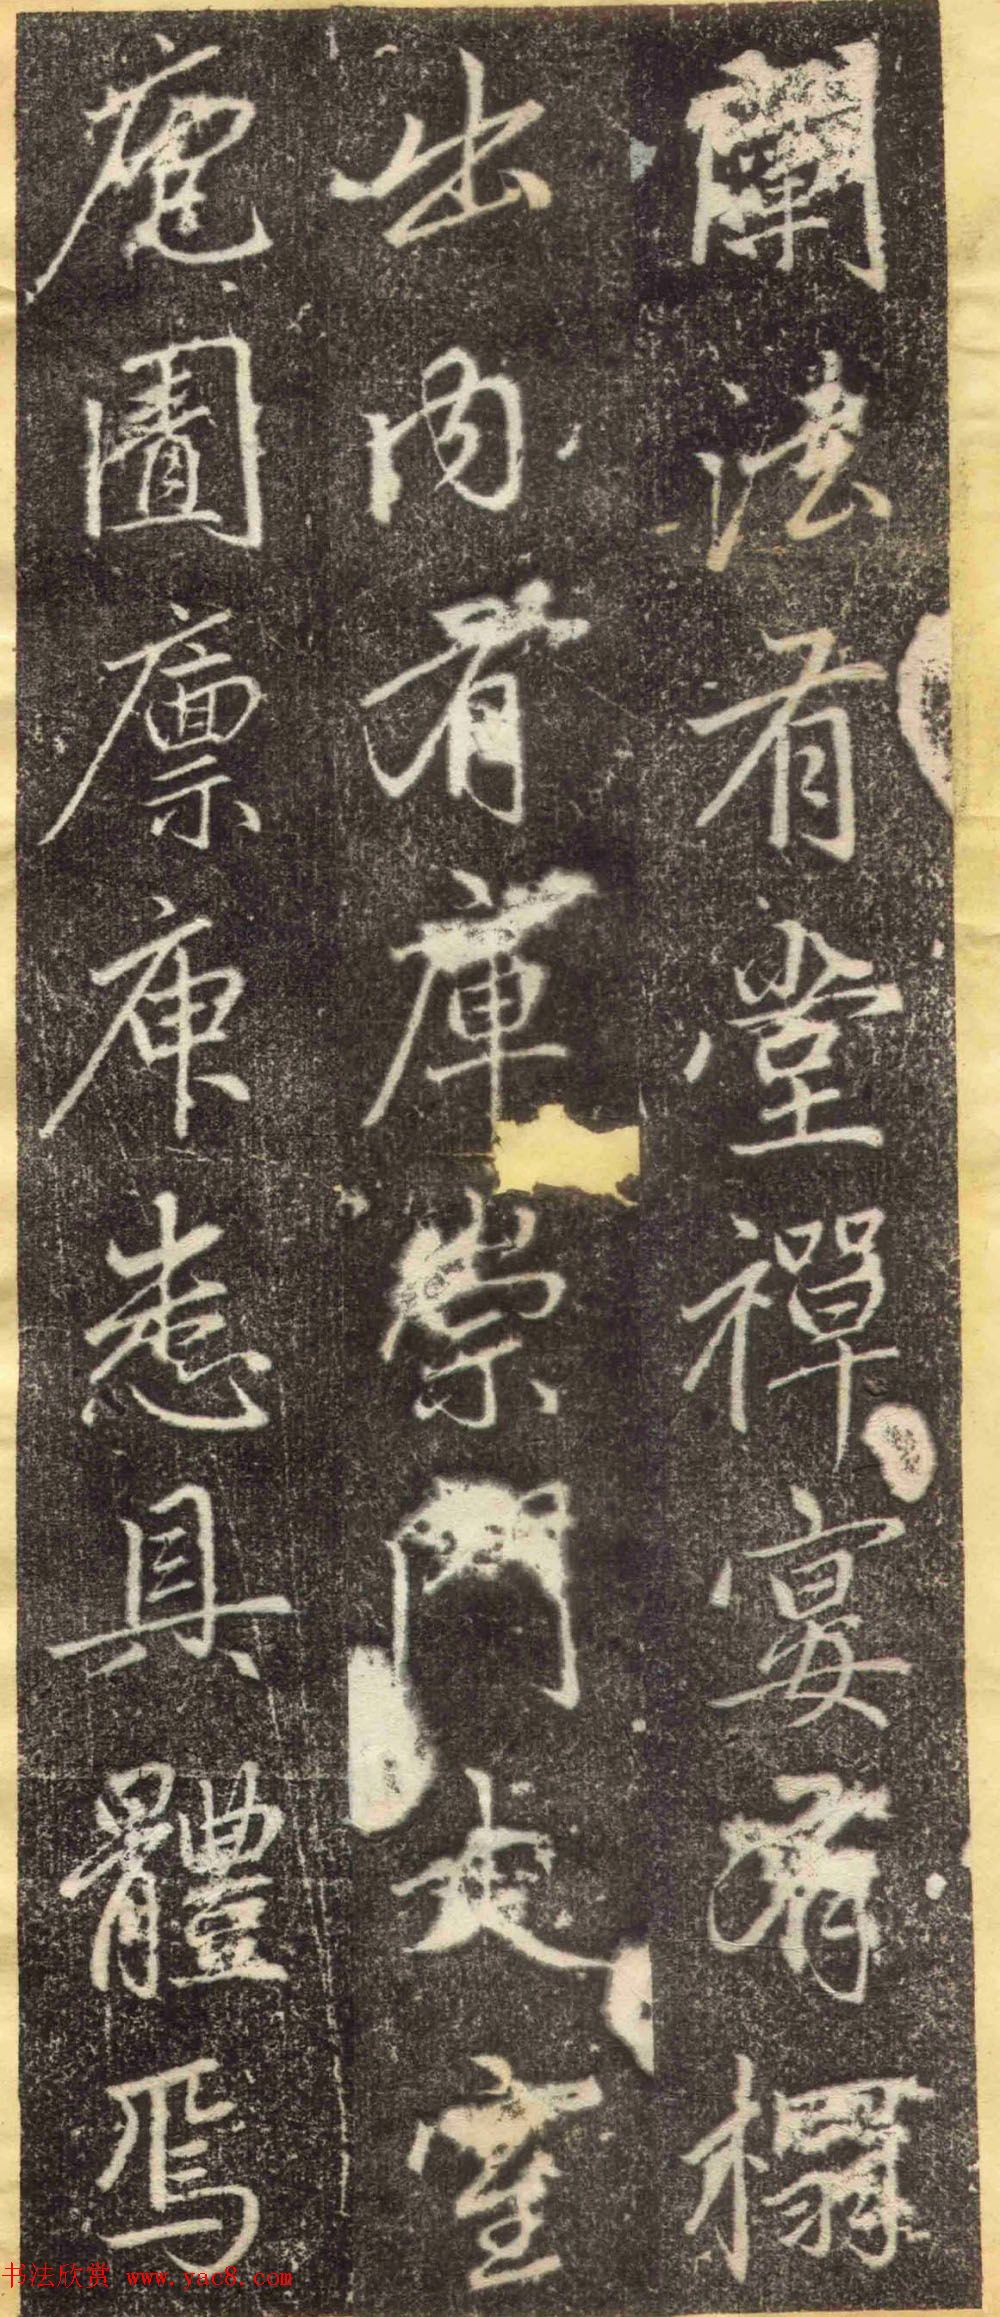 闡法有堂禪宴有榻
出內有庫崇門走室
庖圊廪庾悉具體焉
书法欣赏 www.yac8.com